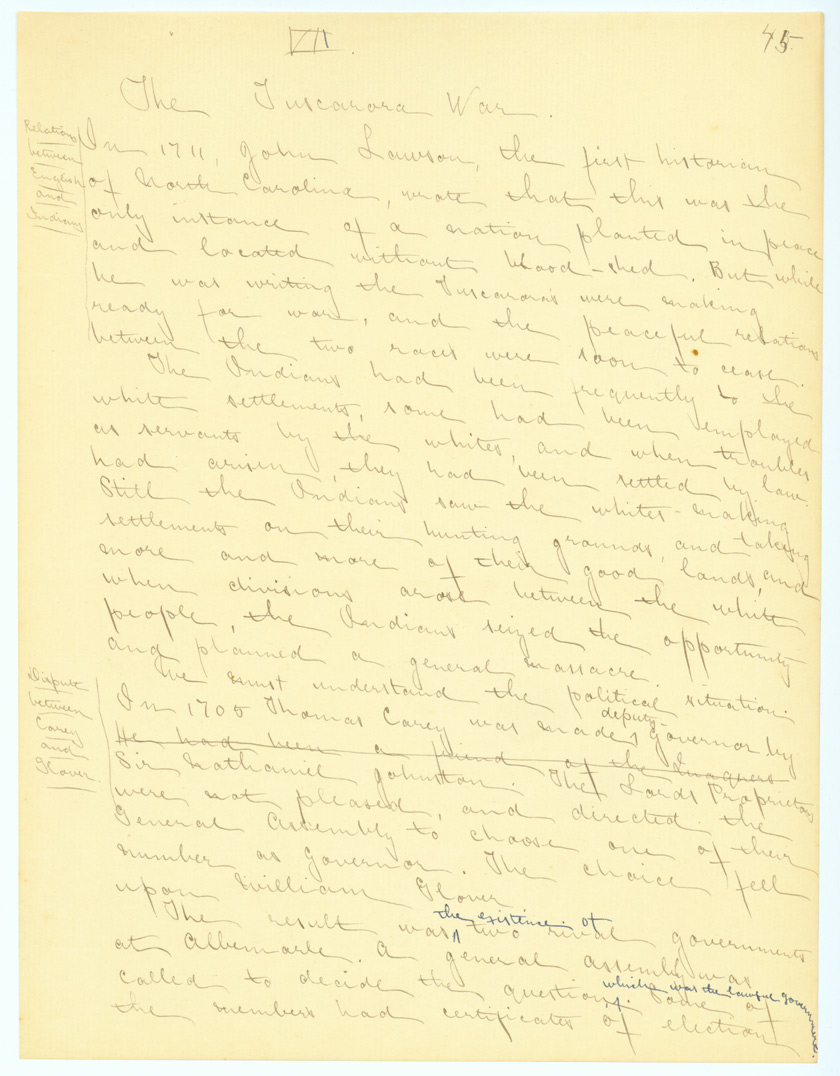 VII.
45
The Tuscarora War.
Relations
between
English
and
Indians
In 1711, John Lawson, the first historian
of North Carolina, wrote that this was the
only instance of a nation planted in peace
and located without blood-shed. But while
he was writing the Tuscaroras were making
ready for war, and the peaceful relations
between the two races were soon to cease.
The Indians had been frequently to the
white settlements, some had been employed
as servants by the whites, and when troubles
had arisen, they had been settled by law.
Still the Indians saw the whites making
settlements on their hunting grounds, and taking
more and more of their good lands, and
when divisions arose between the white
people, the Indians seized the opportunity
and planned a general massacre.
We must understand the political situation:
Dispute
between
Carey
and
Glover.
In 1705 Thomas Carey was made deputy-governor by
He had been a friend of the Quaquers
Sir Nathaniel Johnston. The Lords Proprietors
were not pleased, and directed the
General Assembly to choose one of their
number as governor. The choice fell
upon William Glover
The result was the existence of two rival governments
at Albemarle. A general assembly was
called to decide the question which was the lawful government. Some of
the members had certificates of election